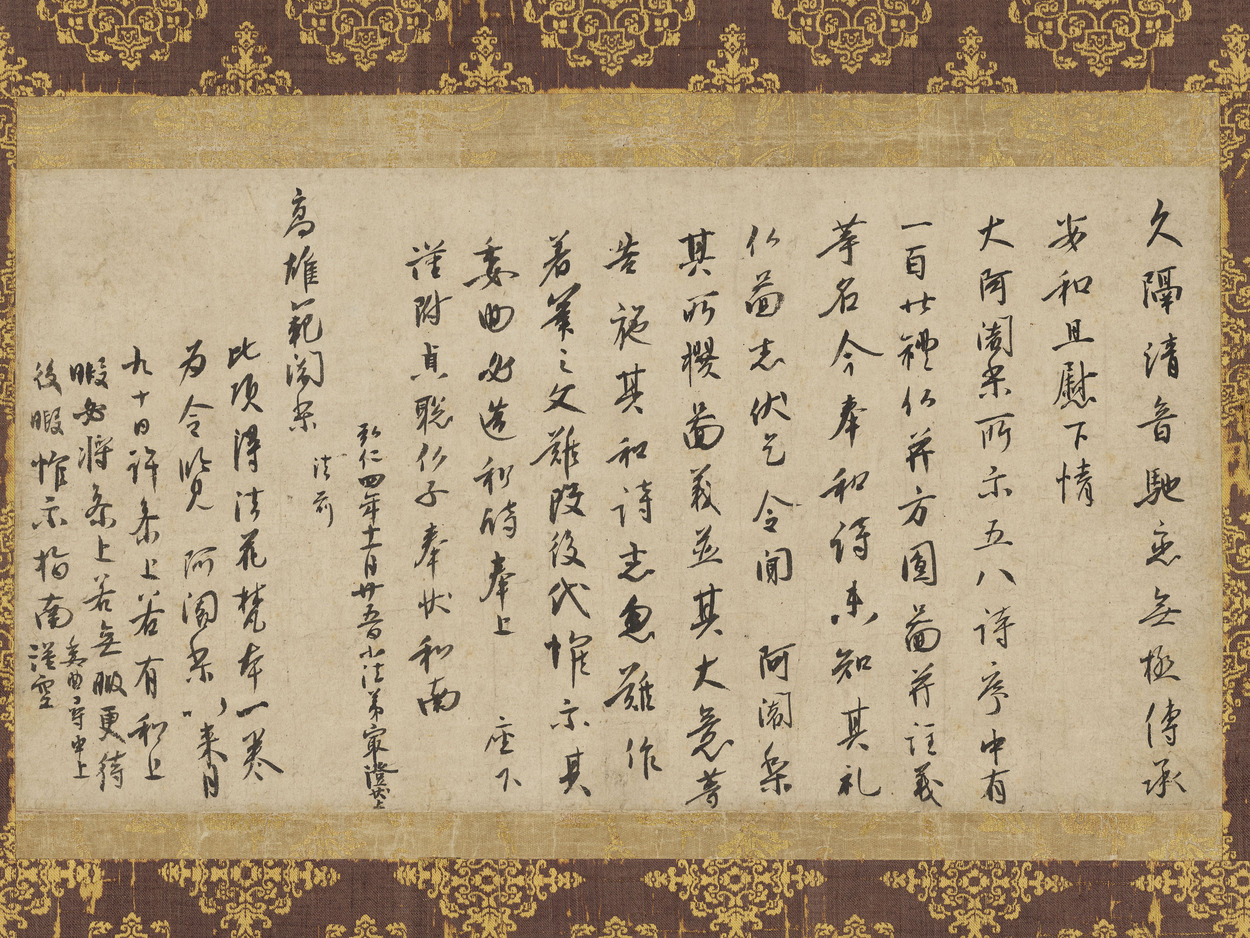 久隔清音馳恋無極傳承
安和且慰下情
大阿闍梨所示五八詩序中有
一百廿禮仏并方圓圖并註義
等名今奉和詩未知其礼
仏圖者伏乞令聞 阿闍梨
其所撰圖義並其大意等
告施其和詩者忽難作
著筆之文難改後代惟示其
委曲必造和詩奉上 座下
謹附貞聡仏子奉状和南
弘仁四年十一月廿五日小法弟最澄状上
高雄範闍梨 法前
此頃得法花梵本一巻
為令覧 阿闍梨 以来月
九十日許参上若有和上
暇必将参上若無暇更待
後暇惟示指南
委曲尋申上
謹空